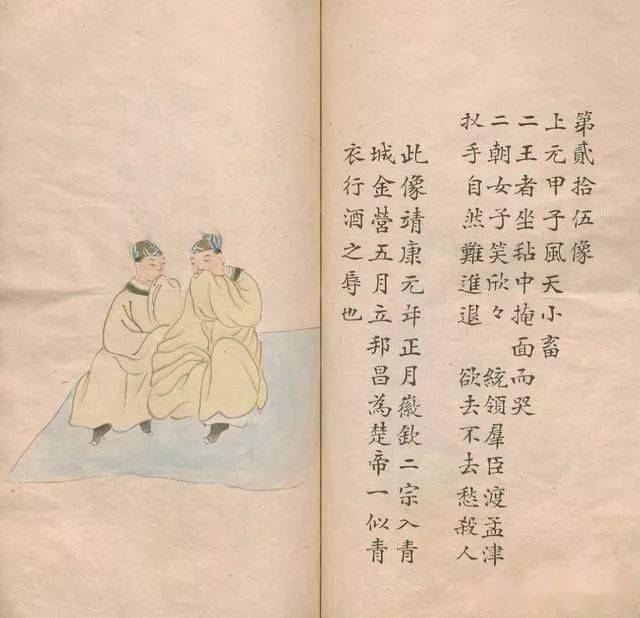 第貳拾伍像
上元甲子風天小畜
二王者坐秥中掩面而哭
二朝女子笑欣々　統領羣臣渡孟津
扙手自然難進退　欲去不去愁殺人
此像靖康元年正月徽欽二宗入青
城金營五月立邦昌為楚帝一似青
衣行酒之辱也